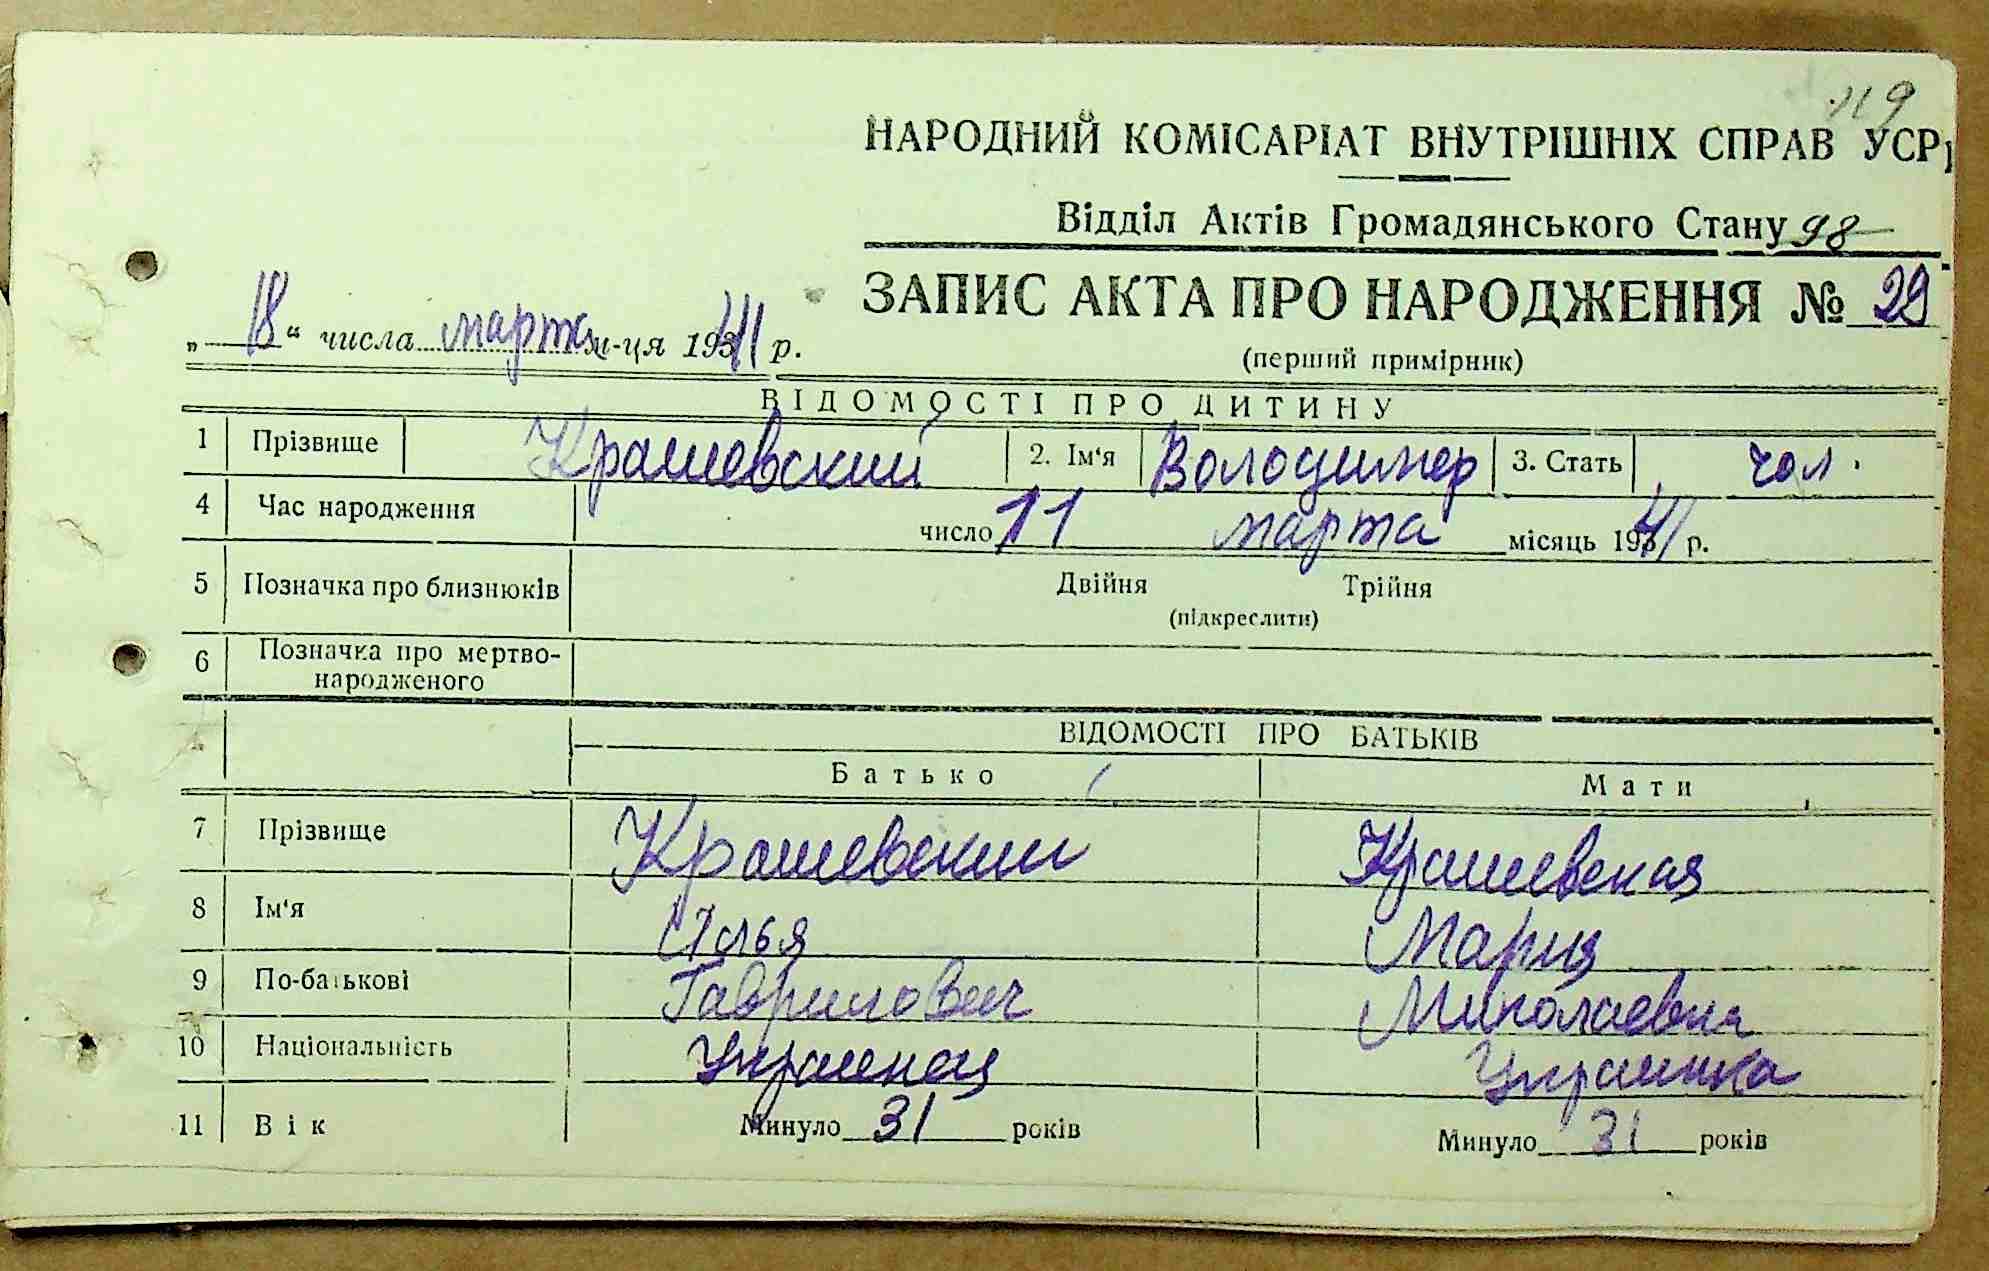 119
НАРОДНИЙ КОМІСАРІАТ ВНУТРІШНІХ СПРАВ УСРР
Відділ Актів Громадянського Стану 98
ЗАПИС АКТА ПРО НАРОДЖЕННЯ № 29
„ 18 “ числа марта м-ця 1941 р.
(перший примірник)
ВІДОМОСТІ ПРО ДИТИНУ
1 Прізвище Крашевский 2. Ім‘я Володимер 3. Стать чол.
4 Час народження число 11 марта місяць 1941 р.
5 Позначка про близнюків Двійня Трійня
(підкреслити)
6 Позначка про мертво-
народженого
ВІДОМОСТІ ПРО БАТЬКІВ
Батько Мати
7 Прізвище Крашевский Крашевская
8 Ім‘я Илья Мария
9 По-батькові Гаврилович Миколаевна
10 Національність Украинец Украинка
11 Вік Минуло 31 років Минуло 31 років